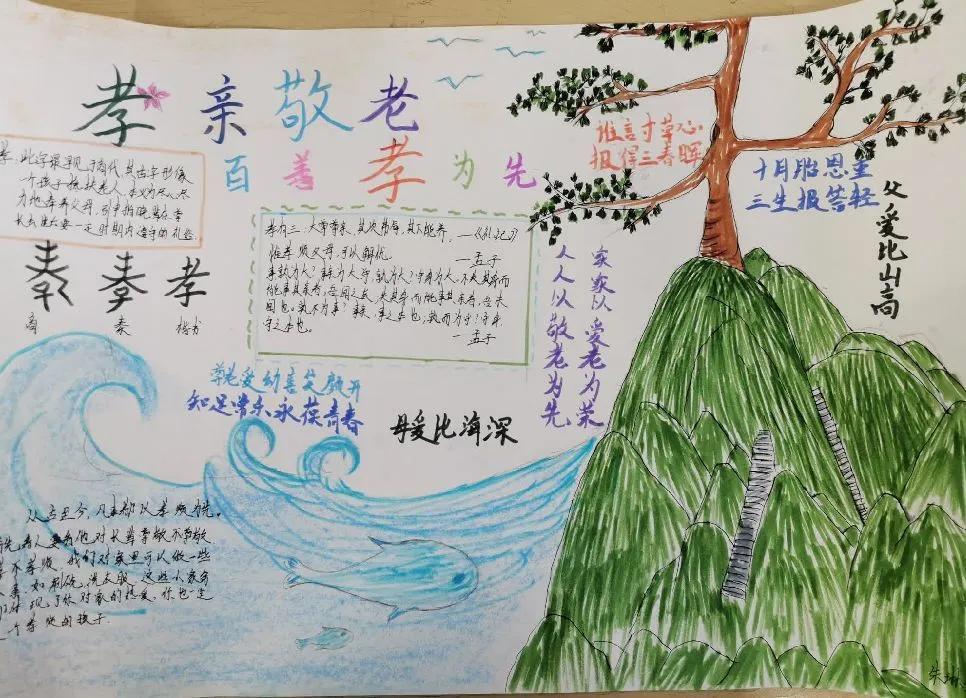 孝亲敬老
百善孝为先
谁言寸草心
报得三春晖
十月胎恩重
三生报答轻
父爱比山高
孝，此字最早见于商代，其古字形像
一个孩子搀扶老人，本义为尽心尽
力地奉养父母，引申指晚辈在尊
长去世后要在一定时期内遵守的礼俗
商 秦 楷书
孝有三：大孝尊亲，其次弗辱，其下能养。—《礼记》
惟孝顺父母，可以解忧。
—孟子
事孰为大？事亲为大；守孰为大？守身为大。不失其身而
能事其亲者，吾闻之矣；失其身而能事其亲者，吾未
闻也。孰不为事？事亲，事之本也；孰不为守？守身，
守之本也。
—孟子
家家以爱老为荣
人人以敬老为先
尊老爱幼喜笑颜开
知足常乐永葆青春
母爱比海深
从古至今，凡事都以孝顺为先。
先，有人要有他对长辈尊敬不尊敬
孝不孝顺，我们对家里可以做一些
事，如刷碗，洗衣服，这些小家务
体现了你对家的热爱，你也一定
个孝顺的孩子.
朱